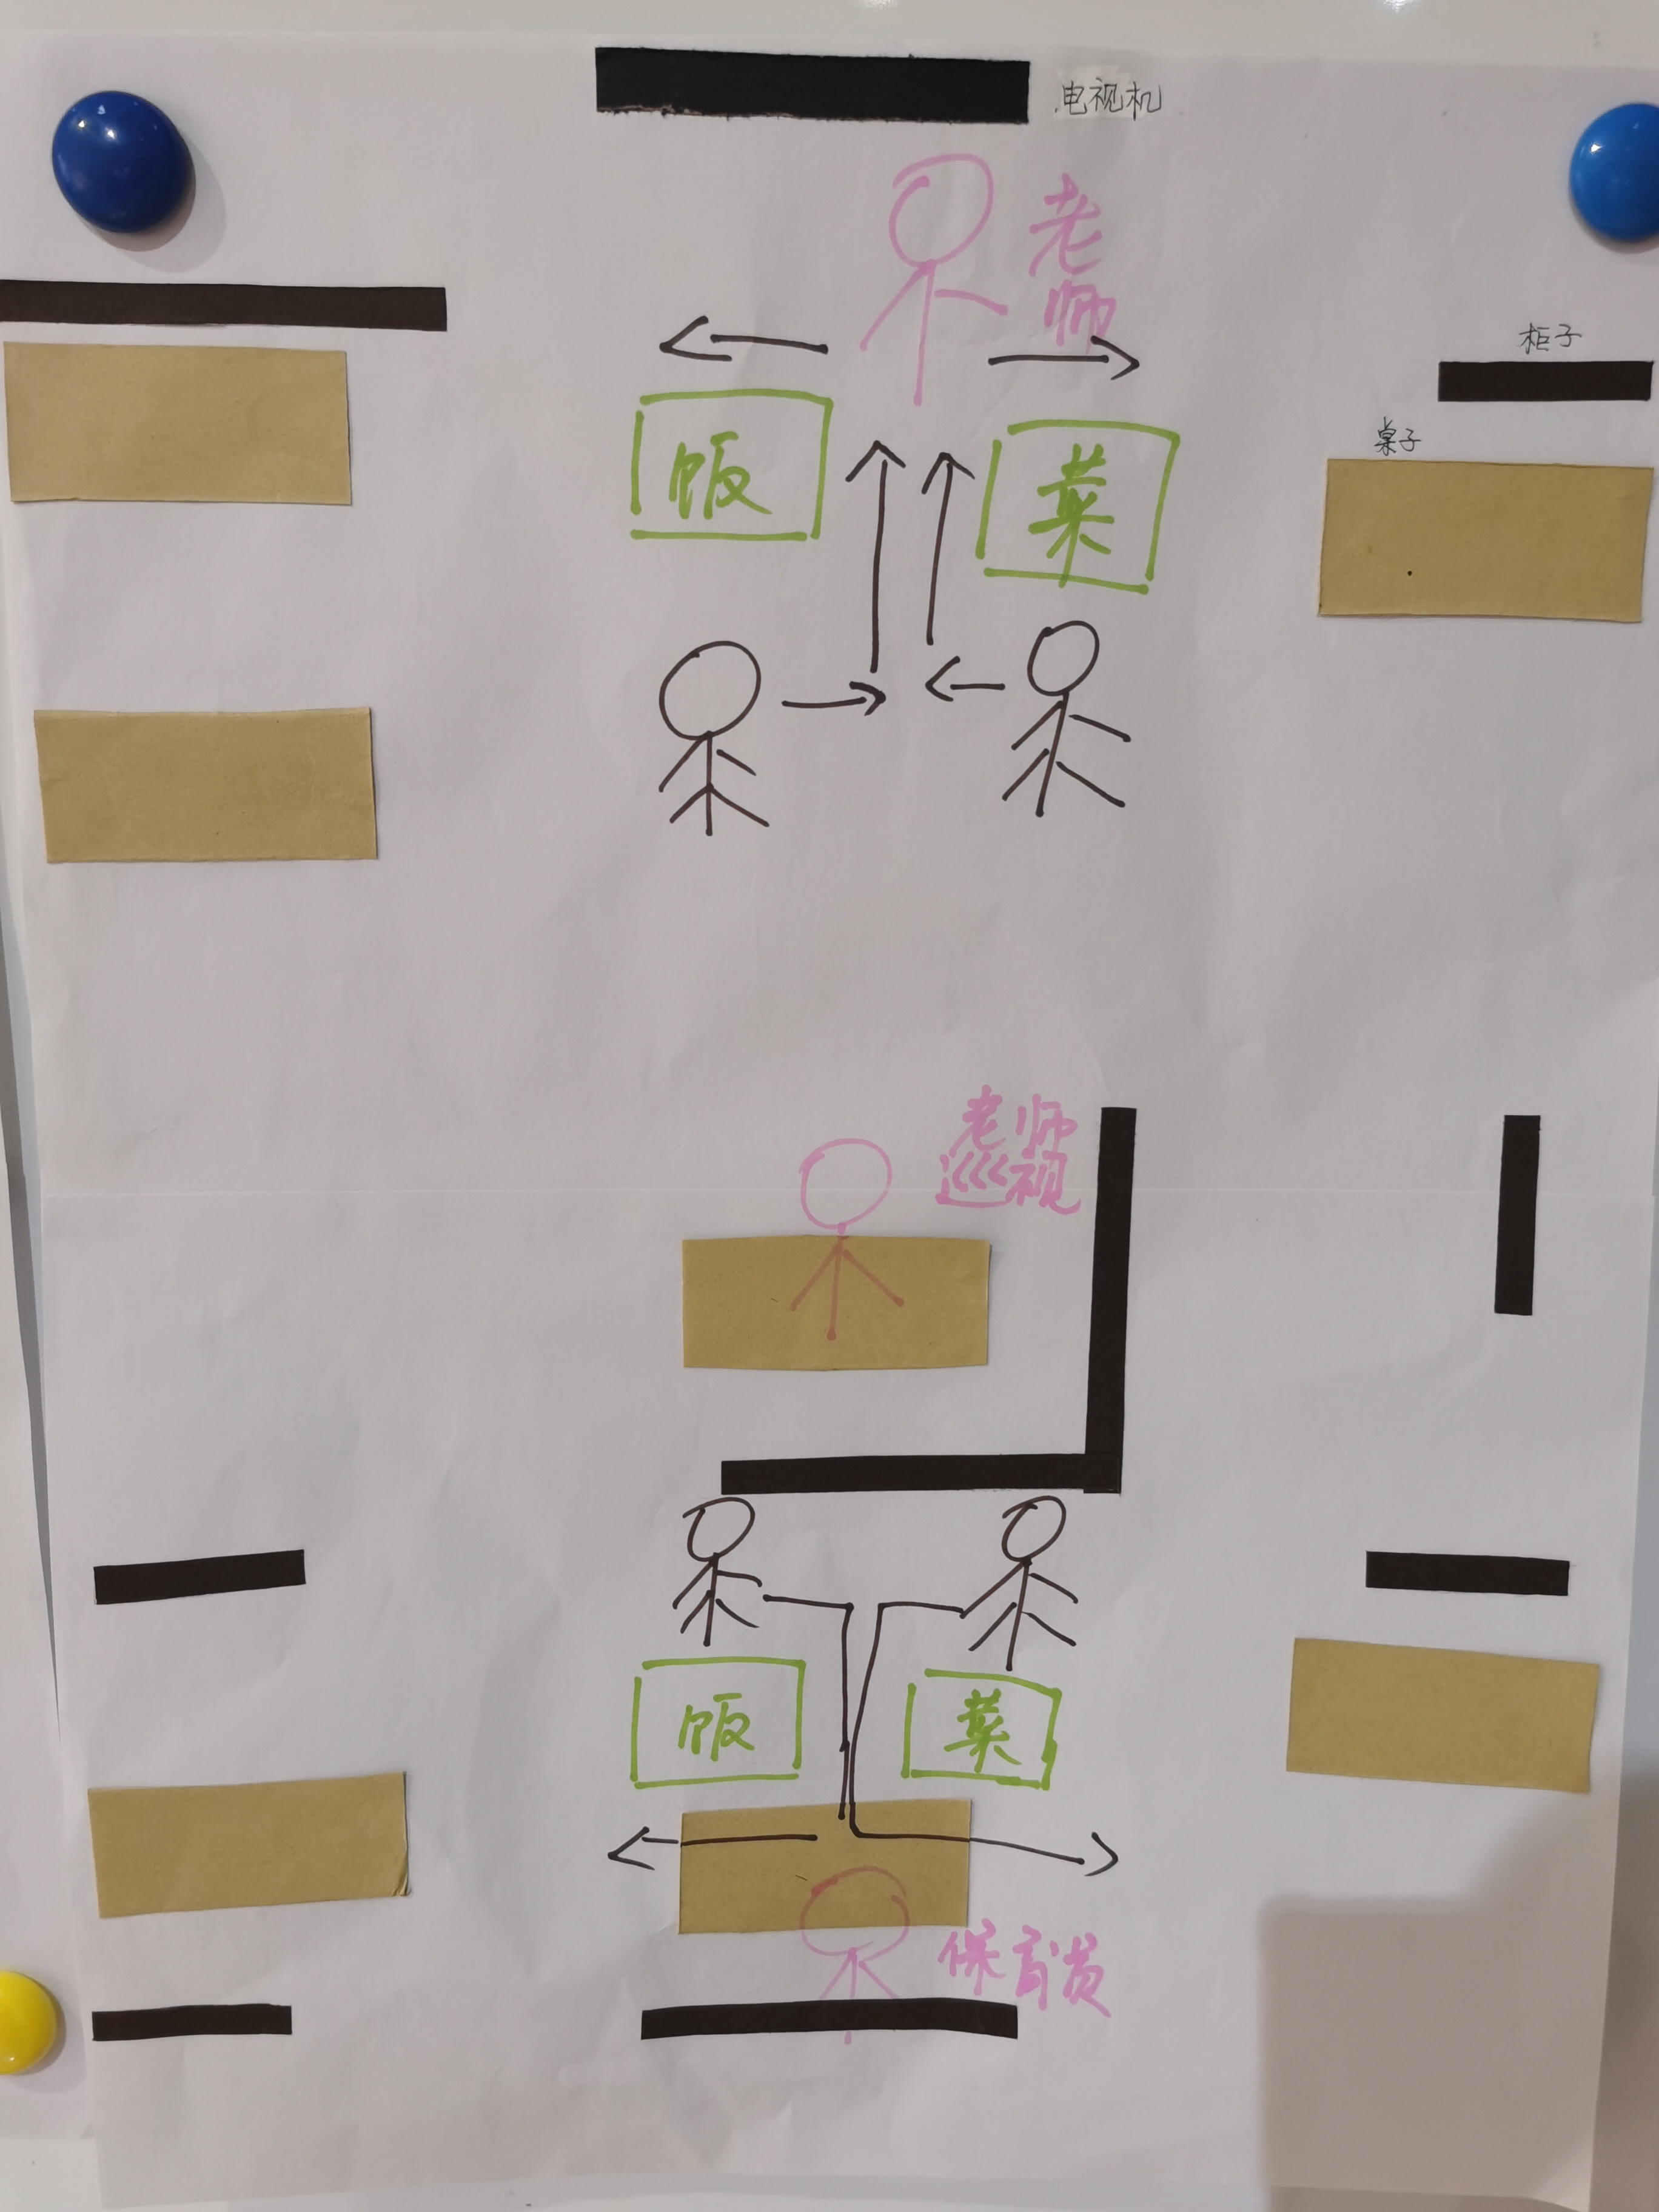 电视机
老
师
柜子
桌子
饭
菜
老师
巡视
饭
菜
保育员